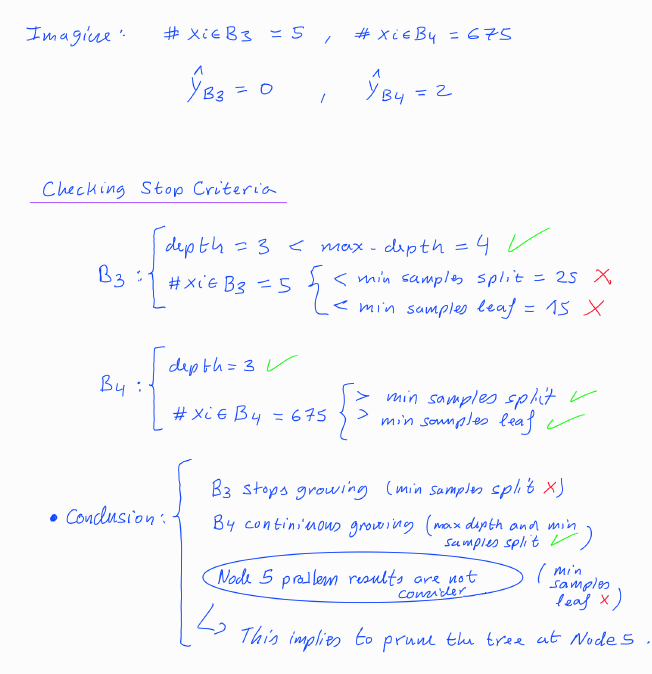 Imagine: # xi∈B3 = 5 , # xi∈B4 = 675
ŷB3 = 0 , ŷB4 = 2
Checking Stop Criteria
B3 : { depth = 3 < max-depth = 4 ✓
# xi∈B3 = 5 { < min samples split = 25 ✗
< min samples leaf = 15 ✗
B4 : { depth = 3 ✓
# xi∈B4 = 675 { > min samples split ✓
> min samples leaf ✓
• Conclusion: { B3 stops growing (min samples split ✗)
B4 continuous growing (max depth and min
samples split ✓)
Node 5 problem results are not
consider (min
samples
leaf ✗)
↳ This implies to prune the tree at Node 5.